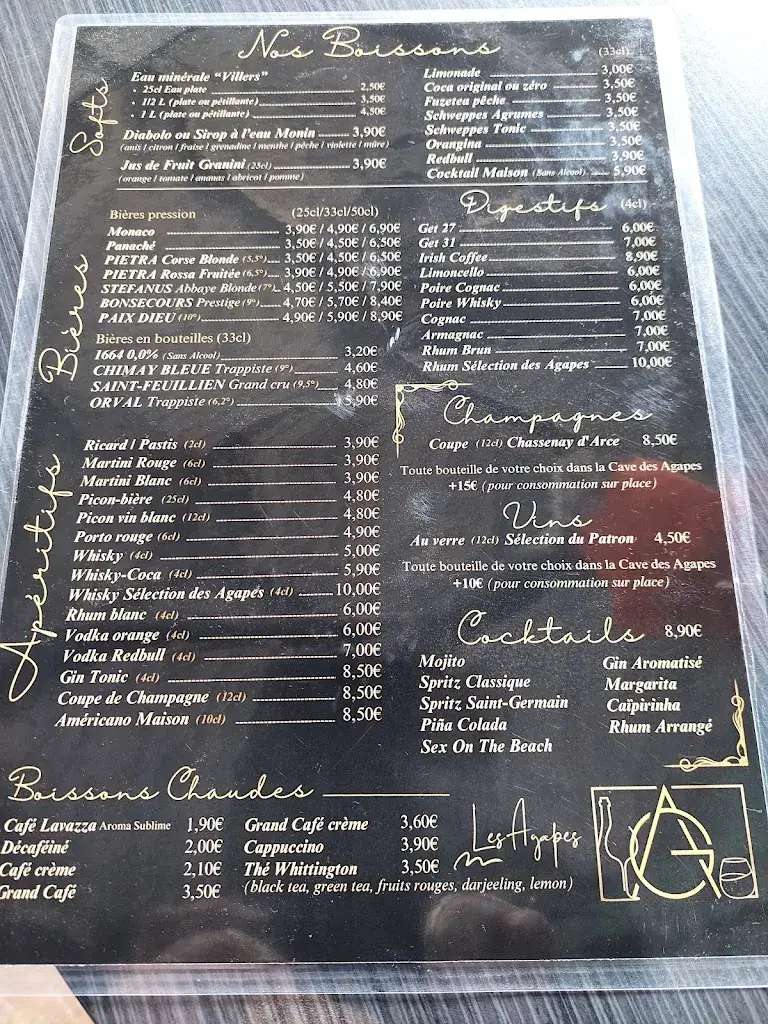 Nos Boissons
Softs
Eau minérale "Villers"
• 25cl Eau plate 2,50€
• 1/2 L (plate ou pétillante) 3,50€
• 1 L (plate ou pétillante) 4,50€
Diabolo ou Sirop à l'eau Monin 3,90€
(anis / citron / fraise / grenadine / menthe / pêche / violette / mûre)
Jus de Fruit Granini (25cl) 3,90€
(orange / tomate / ananas / abricot / pomme)
(33cl)
Limonade 3,00€
Coca original ou zéro 3,50€
Fuzetea pêche 3,50€
Schweppes Agrumes 3,50€
Schweppes Tonic 3,50€
Orangina 3,50€
Redbull 3,90€
Cocktail Maison (Sans Alcool) 5,90€
Bières
Bières pression (25cl/33cl/50cl)
Monaco 3,90€ / 4,90€ / 6,90€
Panaché 3,50€ / 4,50€ / 6,50€
PIETRA Corse Blonde (5,5°) 3,50€ / 4,50€ / 6,50€
PIETRA Rossa Fruitée (6,5°) 3,90€ / 4,90€ / 6,90€
STEFANUS Abbaye Blonde (7°) 4,50€ / 5,50€ / 7,90€
BONSECOURS Prestige (9°) 4,70€ / 5,70€ / 8,40€
PAIX DIEU (10°) 4,90€ / 5,90€ / 8,90€
Bières en bouteilles (33cl)
1664 0,0% (Sans Alcool) 3,20€
CHIMAY BLEUE Trappiste (9°) 4,60€
SAINT-FEUILLIEN Grand cru (9,5°) 4,80€
ORVAL Trappiste (6,2°) 5,90€
Digestifs (4cl)
Get 27 6,00€
Get 31 7,00€
Irish Coffee 8,90€
Limoncello 6,00€
Poire Cognac 6,00€
Poire Whisky 6,00€
Cognac 7,00€
Armagnac 7,00€
Rhum Brun 7,00€
Rhum Sélection des Agapes 10,00€
Apéritifs
Ricard / Pastis (2cl) 3,90€
Martini Rouge (6cl) 3,90€
Martini Blanc (6cl) 3,90€
Picon-bière (25cl) 4,80€
Picon vin blanc (12cl) 4,80€
Porto rouge (6cl) 4,90€
Whisky (4cl) 5,00€
Whisky-Coca (4cl) 5,90€
Whisky Sélection des Agapes (4cl) 10,00€
Rhum blanc (4cl) 6,00€
Vodka orange (4cl) 6,00€
Vodka Redbull (4cl) 7,00€
Gin Tonic (4cl) 8,50€
Coupe de Champagne (12cl) 8,50€
Américano Maison (10cl) 8,50€
Champagnes
Coupe (12cl) Chassenay d'Arce 8,50€
Toute bouteille de votre choix dans la Cave des Agapes
+15€ (pour consommation sur place)
Vins
Au verre (12cl) Sélection du Patron 4,50€
Toute bouteille de votre choix dans la Cave des Agapes
+10€ (pour consommation sur place)
Cocktails 8,90€
Mojito
Spritz Classique
Spritz Saint-Germain
Piña Colada
Sex On The Beach
Gin Aromatisé
Margarita
Caïpirinha
Rhum Arrangé
Boissons Chaudes
Café Lavazza Aroma Sublime 1,90€
Décaféiné 2,00€
Café crème 2,10€
Grand Café 3,50€
Grand Café crème 3,60€
Cappuccino 3,90€
Thé Whittington 3,50€
(black tea, green tea, fruits rouges, darjeeling, lemon)
Les Agapes
AG